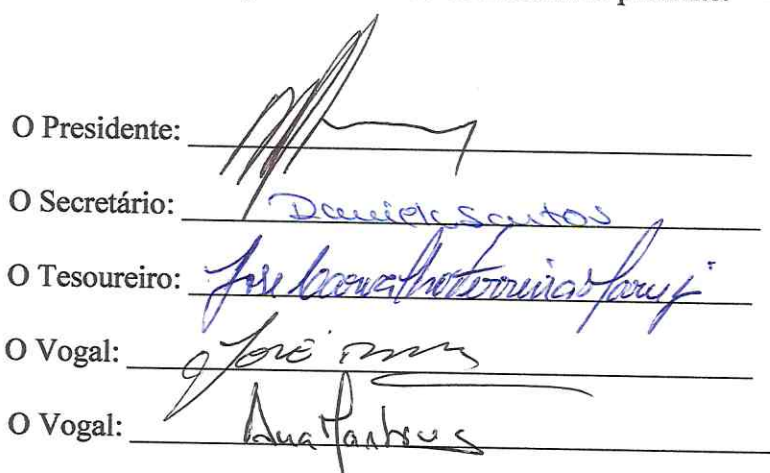 O Presidente:
O Secretário: Daniela Santos
O Tesoureiro: José Carvalho Ferreira
O Vogal: José
O Vogal: Ana